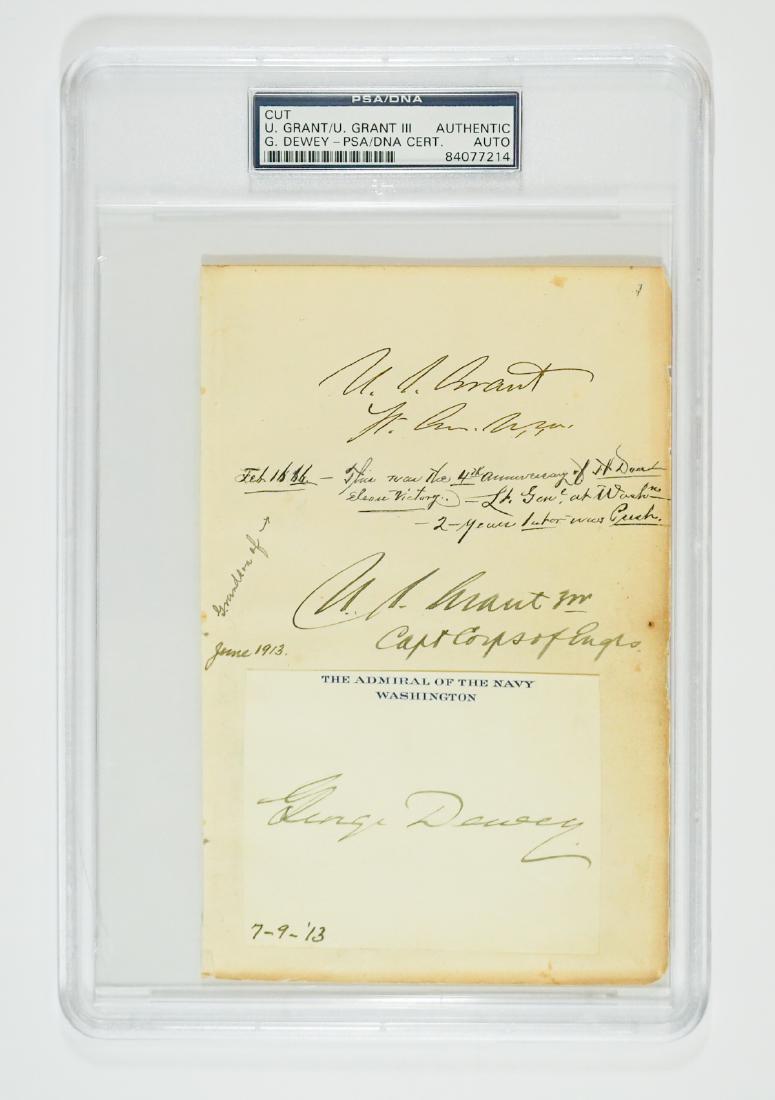 PSA/DNA
CUT
U. GRANT/U. GRANT III AUTHENTIC
G. DEWEY – PSA/DNA CERT. AUTO
84077214
U. S. Grant
Lt. Gen. U.S.A.
Feb 16 66 – This was the 4th anniversary of Ft Donelson Victory. – Lt. Genl at Washn
– 2 – years later was Presn.
Grandson of →
U. S. Grant 3rd
June 1913. Capt Corps of Engrs.
THE ADMIRAL OF THE NAVY
WASHINGTON
George Dewey
7-9-'13